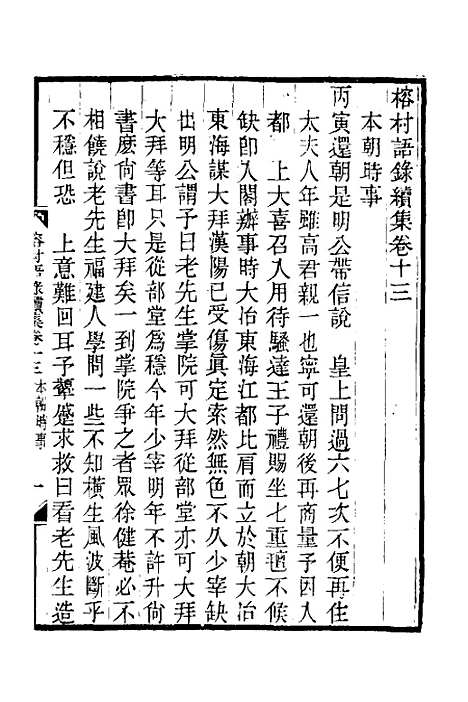 榕村語錄續集卷十三
本朝時事
丙寅還朝是明公帶信說　皇上問過六七次不便再住
太夫人年雖高君親一也寧可還朝後再商量予因入
都　上大喜召入用待騷達王子禮賜坐七重氊不候
缺卽入閣辦事時大冶東海江都比肩而立於朝大冶
東海謀大拜漢陽已受傷眞定索然無色不久少宰缺
出明公謂予曰老先生掌院可大拜從部堂亦可大拜
大拜等耳只是從部堂爲穩今年少宰明年不許升尙
書麽尙書卽大拜矣一到掌院爭之者眾徐健菴必不
相饒說老先生福建人學問一些不知橫生風波斷乎
不穩但恐　上意難回耳予顰蹙求救曰看老先生造
榕村語錄續集卷十三　本朝時事　一